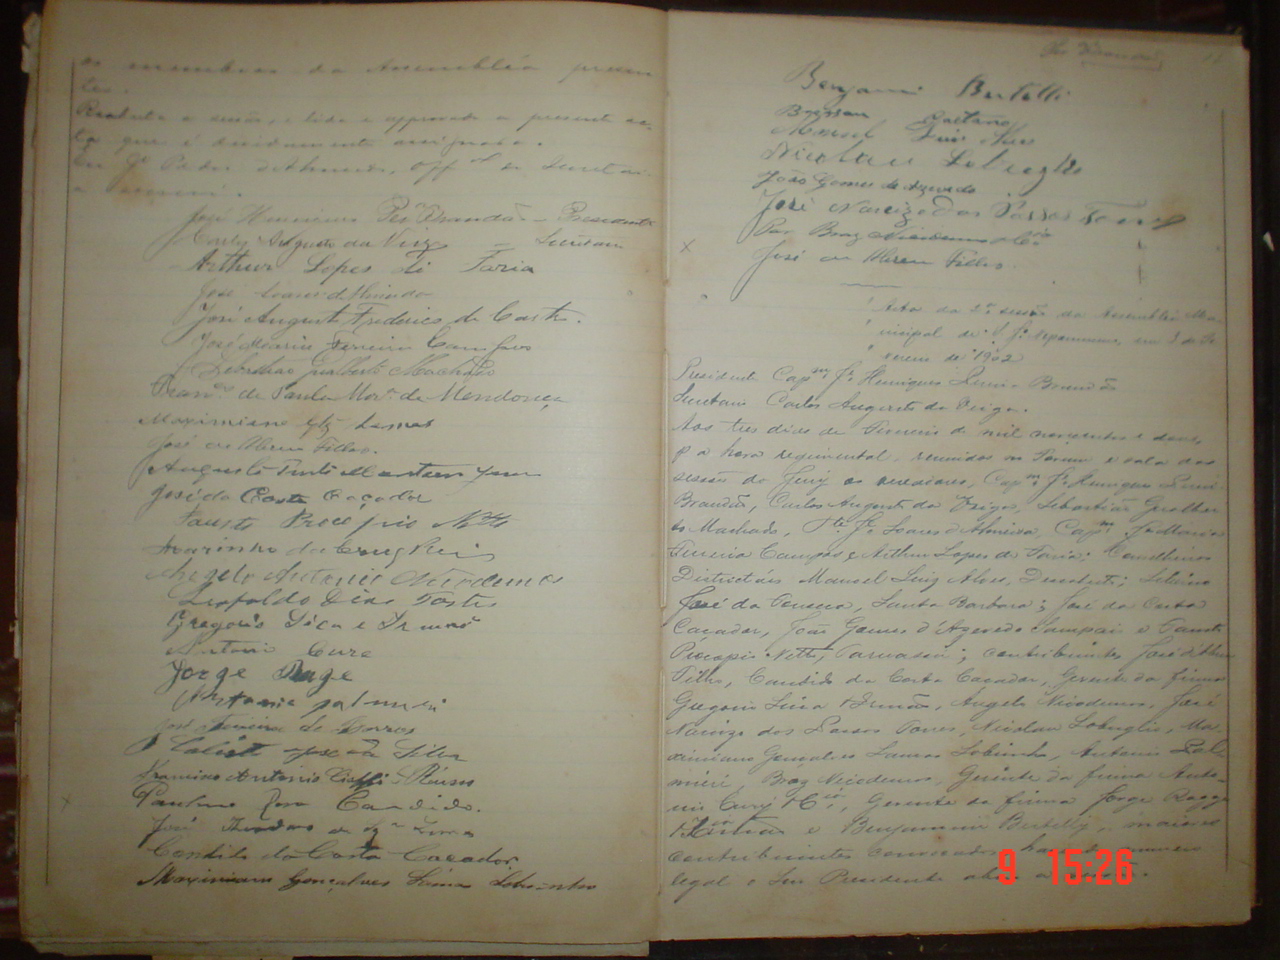 os membros da Assembléa presen-
tes.
Reaberta a sessão, é lida e approvada a presente ac-
ta que é devidamente assignada.
Eu J.e Pedro d'Almeida, off.al da Secretaria
a escrevi.
José Henriques Per.a Brandão - Presidente
Carlos Augusto da Veiga - Secretario
Arthur Lopes de Faria
José Soares d'Almeida
José Augusto Frederico de Castro.
José Maria Ferreira Campos
Sebastião Gualberto Machado
Fran.co de Paula Mor.a de Mendonça
Maximiano Glz Lamas
José da Filho.
Augusto Pinto
José da Costa Caçador
Fausto Procopio Netto
Marinho da Cruz Reis
Angelo Antonio Nicodemos
Leopoldo Dias Fortes
Gregorio Sica e Irmão
Antonio Cure
Jorge
Antonio palmieri
José Ferreira de Barros
Calisto José da Silva
Antonio Russo
Paulino Roza Candido.
José Lima
Candido da Costa Caçador
Maximiano Gonçalves Lamas Sobrinho
Benjami Bertelli
Bressan Gaetano
Manoel Luis Alves
Nicolau
João Gomes de Azevedo
José Narcizo dos Passos Torres
Por Braz Nicodemos & C.ia
José da Filho.
Acta da 2.a sessão da Assembléa Mu-
nicipal de em 3 de Fe
vereiro de 1902
Presidente Cap.m J.e Henriques Pereira Brandão
Secretario Carlos Augusto da Veiga.
Aos tres dias de Fevereiro de mil novecentos e dous,
á hora regimental, reunidos no Forum e sala das
sessões do Jury os vereadores, Cap.m J.e Henriques Perei-
Brandão, Carlos Augusto da Veiga, Sebastião Gualber-
to Machado, T.te J.e Soares d'Almeida, Cap.m J.e Maria
Ferreira Campos e Arthur Lopes de Faria; Conselheiros
Districtáes Manoel Luiz Alves, Silvino
José da Fonseca, Santa Barbara; José da Costa
Caçador, João Gomes d'Azevedo Sampaio e Fausto
Procopio Netto, contribuintes José
Filho, Candido da Costa Caçador, Gerente da firma
Gregorio Sica & Irmão, Angelo Nicodemos, José
Narcizo dos Passos Torres, Nicolau Ma-
ximiano Gonçalves Lamas Sobrinho, Antonio Pal
mieri, Braz Nicodemos, Gerente da firma Anto-
nio Cury & C.ia, Gerente da firma Jorge Ragge
& Irmão e Benjamim Bertelli, maiores
contribuintes convocados, havendo numero
legal o Snr Presidente
9 15:26